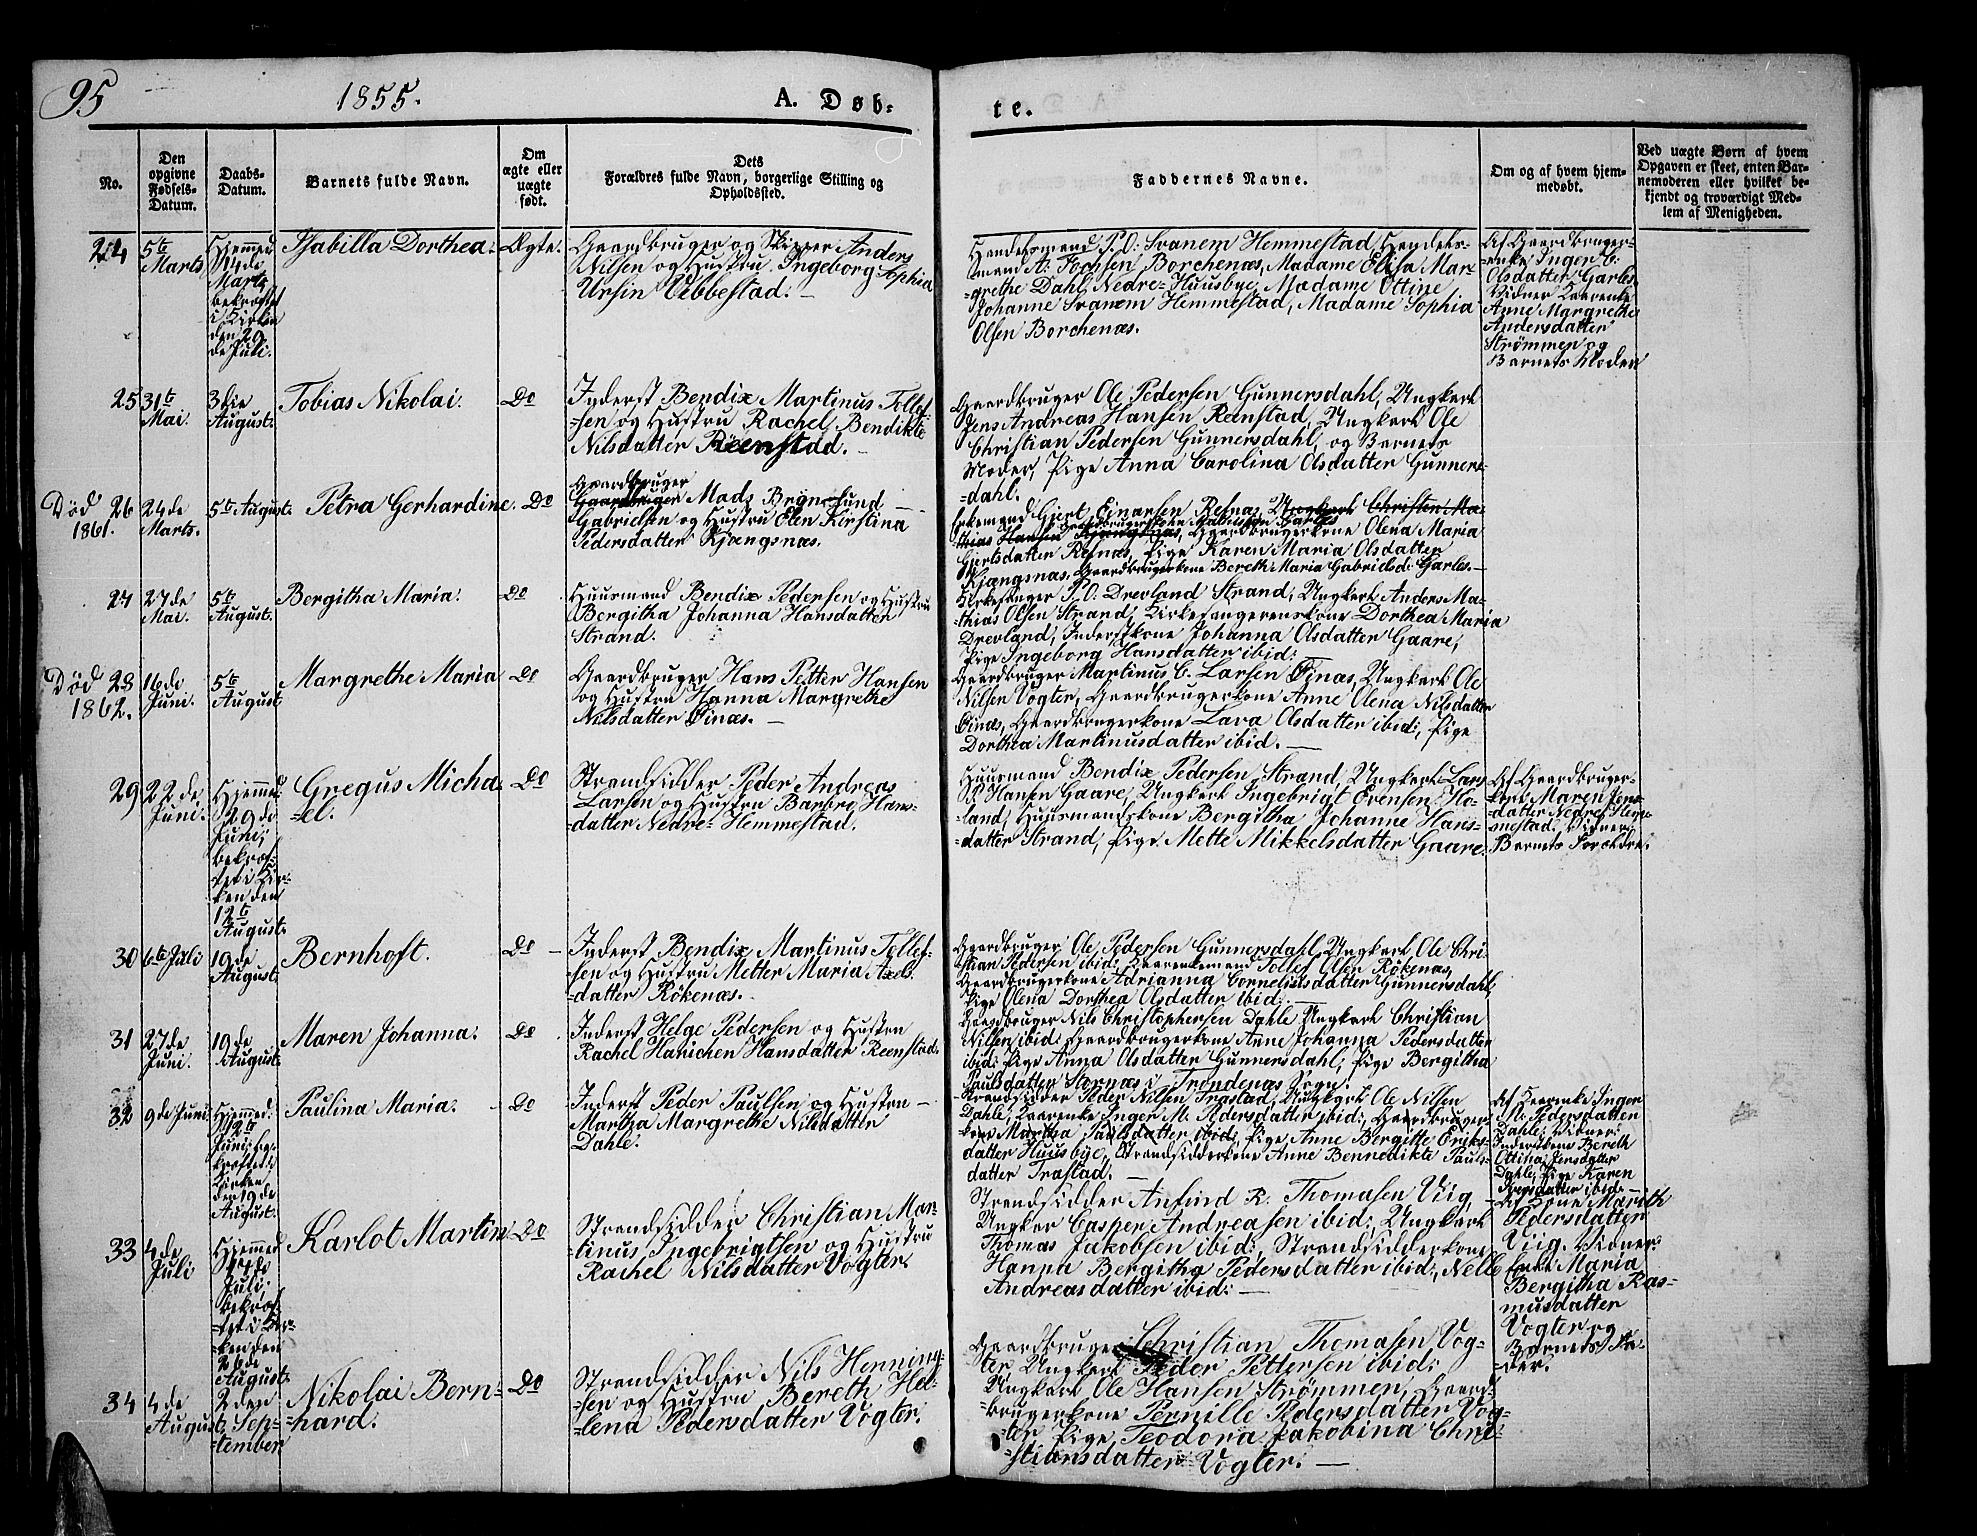 95
1855.
A. Døb-
te.
No.
Den
opgivne
Fødsels-
Datum.
Daabs-
Datum.
Barnets fulde Navn.
Om
ægte eller
uægte
født.
Dets
Forældres fulde Navn, borgerlige Stilling og
Opholdssted.
Faddernes Navne.
Om og af hvem hjem-
medøbt.
Ved uægte Børn af hvem
Opgaven er skeet, enten Bar-
nemoderen eller hvilket be-
kjendt og troværdigt Med-
lem af Menigheden.
24
5te
Marts
Hjemmed.
14de
Marts
bekræftet
i Kirken
den 29
de Juli.
Isabilla Dorthea.
Ægte.
Gaardbruger og Skipper Anders
Nilsen og Hustru Ingeborg Sophia
Ursin Vebbestad. —
Handelsmand P. O. Svanem Hemmestad, Handels-
mand A. Fochsen Borchenæs, Madame Elisa Mar-
=grethe Dahl Nedre=Huusbye, Madame Ottine
Johanne Svanem Hemmestad, Madame Sophia
Olsen Borchenæs.
Af Gaardbruger-
=enke Inger C.
Olsdatter Garles.
Vidner Kaarenke
Anne Margrethe
Andersdatter
Strømmen og
Barnets Moder
25
31te
Mai.
3die
August.
Tobias Nikolai.
Do
Inderst Bendix Martinus Tollef-
=sen og Hustru Rachel Bendikte
Nilsdatter Reenstad. —
Gaardbruger Ole Pedersen Gunnersdahl, Ungkarl
Jens Andreas Hansen Reenstad, Ungkarl Ole
Christian Pedersen Gunnersdahl, og Barnets
Moder, Pige Anna Carolina Olsdatter Gunners-
=dahl.
Død
1861.
26
24de
Marts.
5te August.
Petra Gerhardine.
Do
Gaardbruger
Gaardbruger Mads Brynelund
Gabrielsen og Hustru Elen Kirstina
Pedersdatter Kjængsnæs.
Enkemand Gjert Einarsen Refnæs, Ungkarl Christen Ma-
=thias Hansen Kjængsnæs, Gaardbrugerkone Olena Maria
Gjertsdatter Refnæs, Pige Karen Maria Olsdatter
Kjængsnæs, Gaardbrugerkone Bereth Maria Gabrielsd: Garles.—
27
27de
Mai.
5te
August.
Bergitha Maria.
Do
Huusmand Bendix Pedersen og Hustru
Bergitha Johanna Hansdatter
Strand.
Kirkesanger P. O. Drevland Strand, Ungkarl Anders Ma-
=thias Olsen Strand, Kirkesangerenskone Dorthea Maria
Drevland, Inderstkone Johanna Olsdatter Gaare,
Pige Ingeborg Hansdatter ibid: —
Død
1862.
28
16de
Juni.
5te
August
Margrethe Maria
Do
Gaardbruger Hans Petter Hansen
og Hustru Hanna Margrethe
Nilsdatter Øinæs. —
Gaardbruger Martinus C. Larsen Øinæs, Ungkarl Ole
Nilsen Vogter, Gaardbrugerkone Anne Olena Nilsdatter
Øinæs, Gaardbrugerkone Lava Olsdatter ibid:, Pige
Dorthea Martinusdatter ibid. —
29
22de
Juni.
Hjemmed.
29de
Juni,
bekræf-
tet i Kir-
ken den
12te
August.
Gregus Micha
=el.
Do
Strandsidder Peder Andreas
Larsen og Hustru Barbro Hans-
datter Nedre=Hemmestad.
Huusmand Bendix Pedersen Strand, Ungkarl Lars
P. Hansen Gaare, Ungkarl Ingebrigt Evensen Ho-
=land, Huusmandskone Bergitha Johanne Hans-
=datter Strand, Pige Mette Mikkelsdatter Gaare.
Af Gaardbruger-
=kone Maren Jens-
=datter Nedre Hem-
mestad. Vidner
Barnets Forældre.
30
6te Juli
19de
August.
Bernhoft.
Do
Inderst Bendix Martinus Tollef-
=sen og Hustru Metter Maria Axels-
=datter Røkenæs.
Gaardbruger Ole Pedersen Gunnersdahl, Ungkarl Ole Chri-
stian Pedersen ibid: Kaarenkemand Tollef Olsen Røkenæs,
Gaardbrugerkone Adrianna Corneliusdatter Gunnersdahl,
Pige Olena Dorthea Olsdatter ibid: —
31
27de
Juni.
19de
August.
Maren Johanna.
Do
Inderst Helge Pedersen og Hustru
Rachel Hanichen Hansdatter Reenstad.
Gaardbruger Nils Christophersen Dahle Ungkarl Christian
Nilsen ibid: Gaardbrugerkone Anne Johanna Pedersdatter
ibid: Pige Anna Olsdatter Gunnersdahl, Pige Bergitha
Paulsdatter Stornæs i Trondenæs Sogn.
32
9de Juni
Hjemmed.
12te
Juni, be-
kræftet i
Kirken
den 19de
August.
Paulina Maria.
Do
Inderst Peder Paulsen og Hustru
Martha Margrethe Nilsdatter
Dahle.
Strandsidder Peder Nilsen Trastad, Ungkarl Ole Nilsen
Dahle, Kaarenke Inger M. Pedersdatter ibid:, Gaardbruger-
kone Martha Paulsdatter ibid:, Pige Anne Bergitte Eriks-
datter Huusbye, Strandsidderkone Anne Bennedikte Pauls-
datter Trastad. —
Af Kaarenke Inger
M. Pedersdatter
Dahle, Vidner:
Inderstkone Bereth
Ottina Jensdatter
Dahle, Pige Karen
datter ibid:
33
4de
Juli
Hjemmed
Juli,
bekræf-
tet i Kir-
ken den
26de
August.
Karlot Martin
Do
Strandsidder Christian Mar-
=tinus Ingebrigtsen og Hustru
Rachel Nilsdatter Vogter.
Strandsidder Anfind R. Thomasen Viig
Ungkar Casper Andreasen ibid:, Ungkarl
Thomas Jakobsen ibid:, Strandsidderkone
Hanna Bergitha Pedersdatter ibid:, Nelle
Andreasdatter ibid: —
Af Kone Mareth
Pedersdatter
Viig. Vidner:
Enke Maria
Bergitha Ras-
musdatter
Vogter og
Barnets Fa-
=der.
34
4de
August
2den
Sep-
=tember
Nikolai Bern-
=hard.
Do
Strandsidder Nils Henning-
=sen og Hustru Bereth Hel-
=lena Pedersdatter Vogter.
Gaardbruger Christian Thomasen Vog-
ter, Ungkarl Peder Pettersen ibid:
Ungkarl Ole Hansen Strømmen, Gaard-
=brugerkone Pernille Pedersdatter Vog-
=ter Pige Teodora Jakobina Chri-
=stiansdatter Vogter. —